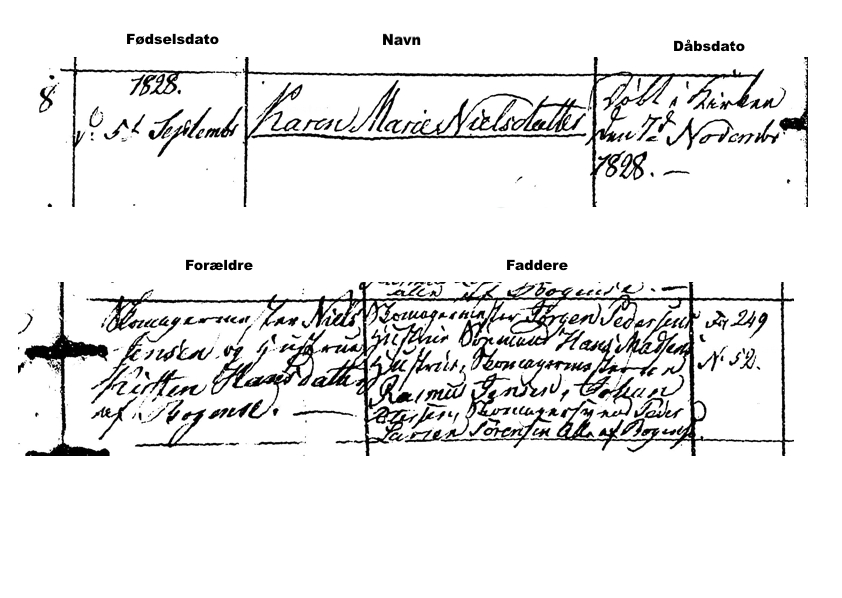 Fødselsdato
Navn
Dåbsdato
8
1828.
d: 5t Septembr
Karen Marie Nielsdatter
Døbt i Kirken
den 7d Novembr
1828. —
Forældre
Faddere
alle af Bogense. —
Skomagermester Niels
Jensen og Hustrue
Kirsten Hansdatter
af Bogense. —
Skomagermester Jørgen Pedersens
Hustrue, Hans Madsens
Hustrue, Skomagermesterne
Rasmus Jensen, Johan
Petersen, Skomagersvend Peder
Larsen Sørensen Alle af Bogense.
Fol 249
No 52.